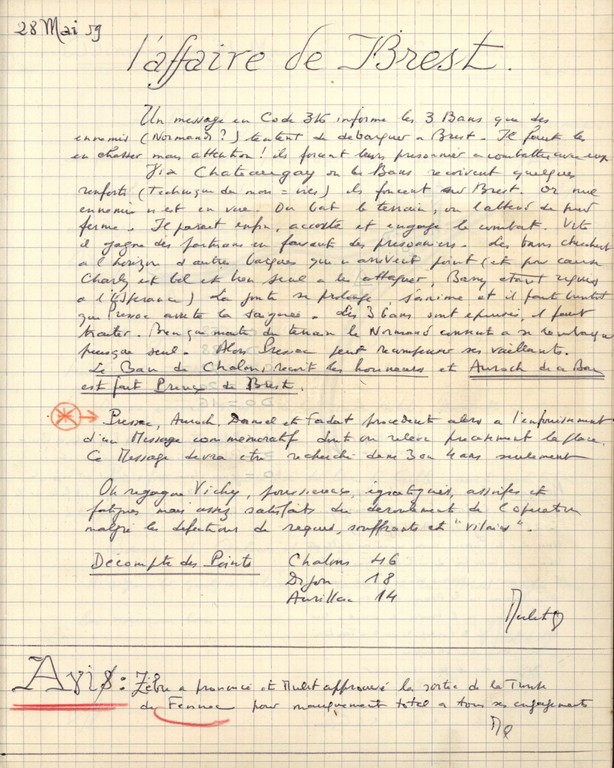 28 Mai 59
l'affaire de Brest.
Un message en Code 316 informe les 3 Bans que des
ennemis (Normands?) tentent de debarquer a Brest. Il faut les
en chasser mais attention! ils forcent leurs prisonnier a combattre avec eux
Via Chateaugay ou les Bans recoivent quelques
renforts (Technique du mors = vies) ils foncent sur Brest. Or nul
ennemi n'est en vue. On bat le terrain, on l'attend de pied
ferme. Il parait enfin, accoste et engage le combat. Vite
il gagne des portions en faisant des prisonniers. Les bans cherchent
a l'horizon d'autres barques qui n'arrivent point (et pour cause
Charly est bel et bien seul a les attaquer, Bamy etant requis
a l'Esperance) La joute se prolonge, s'anime et il faut bientot
que Pressac arrete la saignée. Les 3 bans sont epuisés, il faut
traiter. Bien que maitre du terrain le Normand consent a se rembarquer
presque seul. Alors Pressac peut recompenser ses vaillants.
Le Ban de Chalons recoit les honneurs et Auroch de ce Ban
est fait Prince de Brest.
Pressac, Auroch, Daniel et Fadat procedent alors a l'enfouissement
d'un Message commemoratif dont on releve precisement la place.
Ce Message devra etre recherché dans 3 ou 4 ans seulement
On regagne Vichy, poussiereux, egratignés, assoiffés et
fatigués mais assez satisfaits du deroulement de l'operation
malgré les defections de requis, souffrants et "vilains".
Décompte des Points Chalons 46
Dijon 18
Aurillac 14
Mulet
Avis: Zébu a prononcé et Mulet approuvé la sortie de la Truste
de Fennec pour manquement total a tous ses engagements